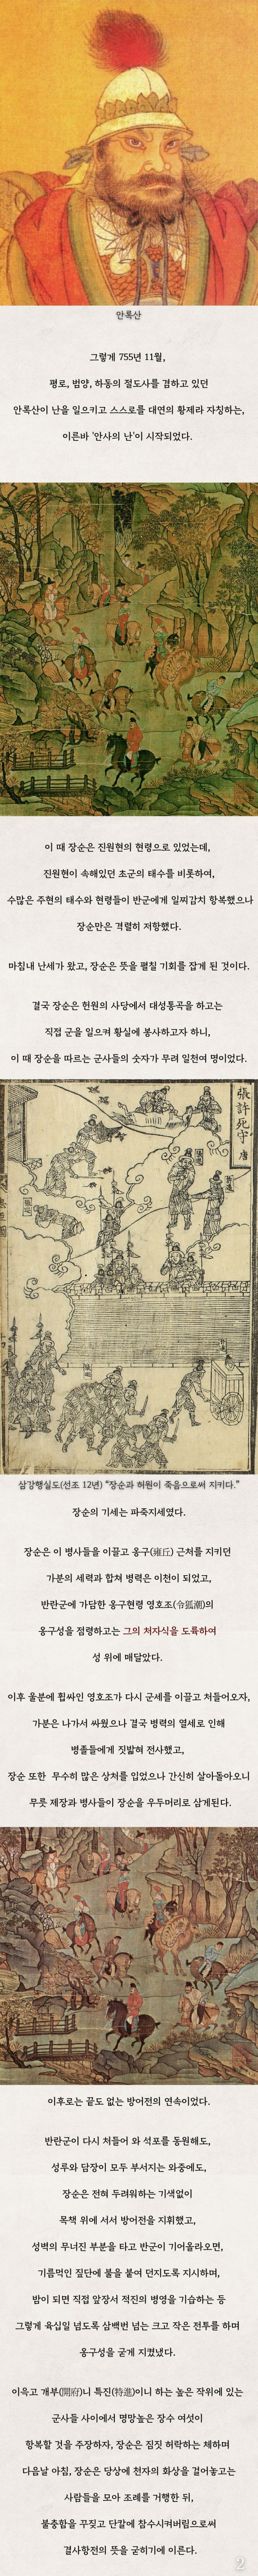 안록산
그렇게 755년 11월,
평로, 범양, 하동의 절도사를 겸하고 있던
안록산이 난을 일으키고 스스로를 대연의 황제라 자칭하는,
이른바 '안사의 난'이 시작되었다.
이 때 장순은 진원현의 현령으로 있었는데,
진원현이 속해있던 초군의 태수를 비롯하여,
수많은 주현의 태수와 현령들이 반군에게 일찌감치 항복했으나
장순만은 격렬히 저항했다.
마침내 난세가 왔고, 장순은 뜻을 펼칠 기회를 잡게 된 것이다.
결국 장순은 헌원의 사당에서 대성통곡을 하고는
직접 군을 일으켜 황실에 봉사하고자 하니,
이 때 장순을 따르는 군사들의 숫자가 무려 일천여 명이었다.
張許死守 唐
삼강행실도(선조 12년) "장순과 허원이 죽음으로써 지키다."
장순의 기세는 파죽지세였다.
장순은 이 병사들을 이끌고 옹구(雍丘) 근처를 지키던
가분의 세력과 합쳐 병력은 이천이 되었고,
반란군에 가담한 옹구현령 영호조(令狐潮)의
옹구성을 점령하고는 그의 처자식을 도륙하여
성 위에 매달았다.
이후 울분에 휩싸인 영호조가 다시 군세를 이끌고 쳐들어오자,
가분은 나가서 싸웠으나 결국 병력의 열세로 인해
병졸들에게 짓밟혀 전사했고,
장순 또한 무수히 많은 상처를 입었으나 간신히 살아돌아오니
무릇 제장과 병사들이 장순을 우두머리로 삼게된다.
이후로는 끝도 없는 방어전의 연속이었다.
반란군이 다시 쳐들어 와 석포를 동원해도,
성루와 담장이 모두 부서지는 와중에도,
장순은 전혀 두려워하는 기색없이
목책 위에 서서 방어전을 지휘했고,
성벽의 무너진 부분을 타고 반군이 기어올라오면,
기름먹인 짚단에 불을 붙여 던지도록 지시하며,
밤이 되면 직접 앞장서 적진의 병영을 기습하는 등
그렇게 육십일 넘도록 삼백번 넘는 크고 작은 전투를 하며
옹구성을 굳게 지켰냈다.
이윽고 개부(開府)니 특진(特進)이니 하는 높은 작위에 있는
군사들 사이에서 명망높은 장수 여섯이
항복할 것을 주장하자, 장순은 짐짓 허락하는 체하며
다음날 아침, 장순은 당상에 천자의 화상을 걸어놓고는
사람들을 모아 조례를 거행한 뒤,
불충함을 꾸짖고 단칼에 참수시켜버림으로써
결사항전의 뜻을 굳히기에 이른다.
2